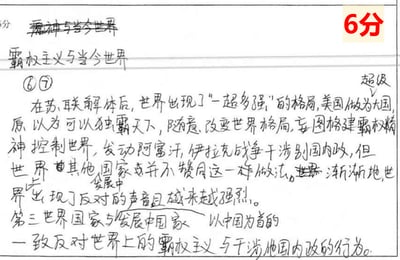 6分
分
霸权主义与当今世界
⑥⑦
超级
在苏联解体后,世界出现了“一超多强”的格局,美国做为大国,
原以为可以独霸天下,随意改变世界格局,妄图构建霸权精
神控制世界,发动阿富汗,伊拉克战争干涉别国内政,但
世界上其他国家并不赞同这一样做法。渐渐地,世
发展中
界出现了反对的声音且越来越强烈。
第三世界国家与发展中国家 以中国为首的
一致反对世界上的霸权主义与干涉他国内政的行为。